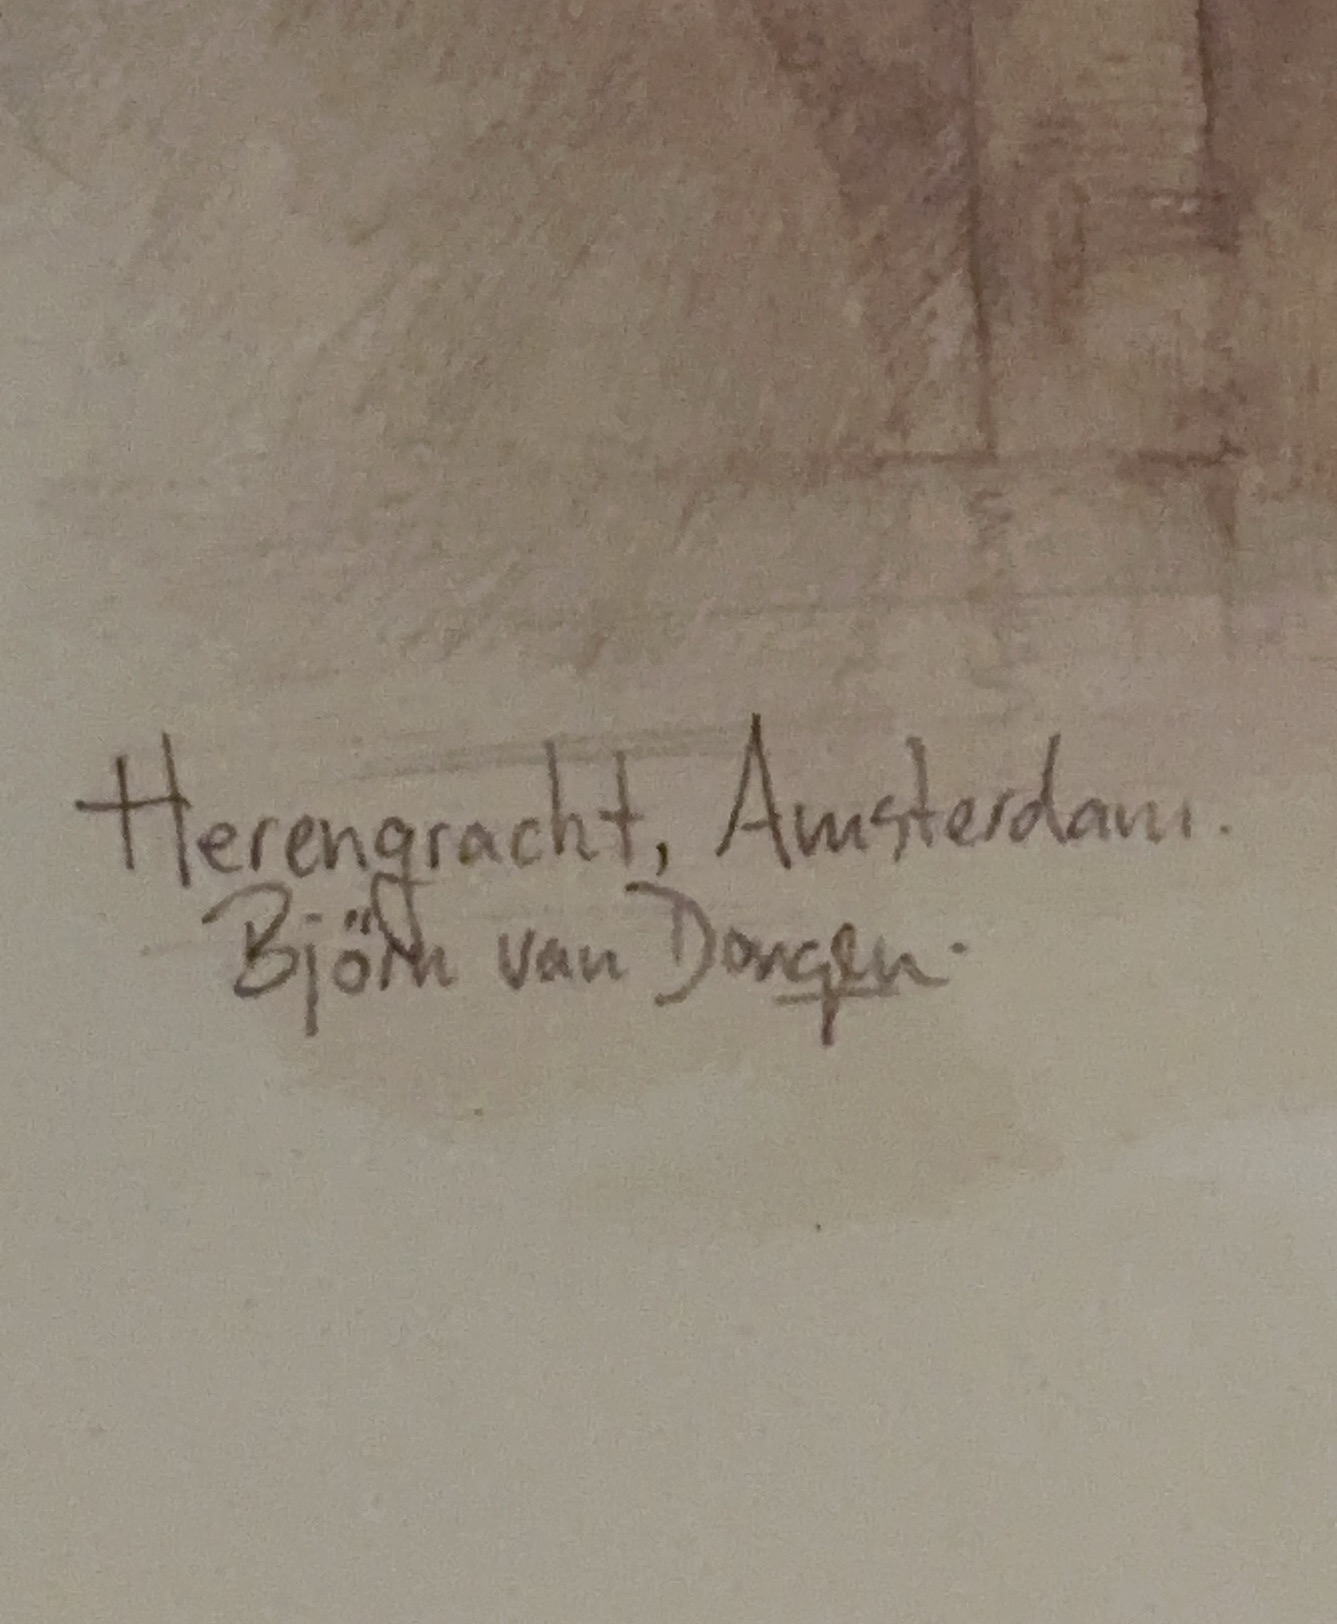 Herengracht, Amsterdam.
Björn van Dongen.